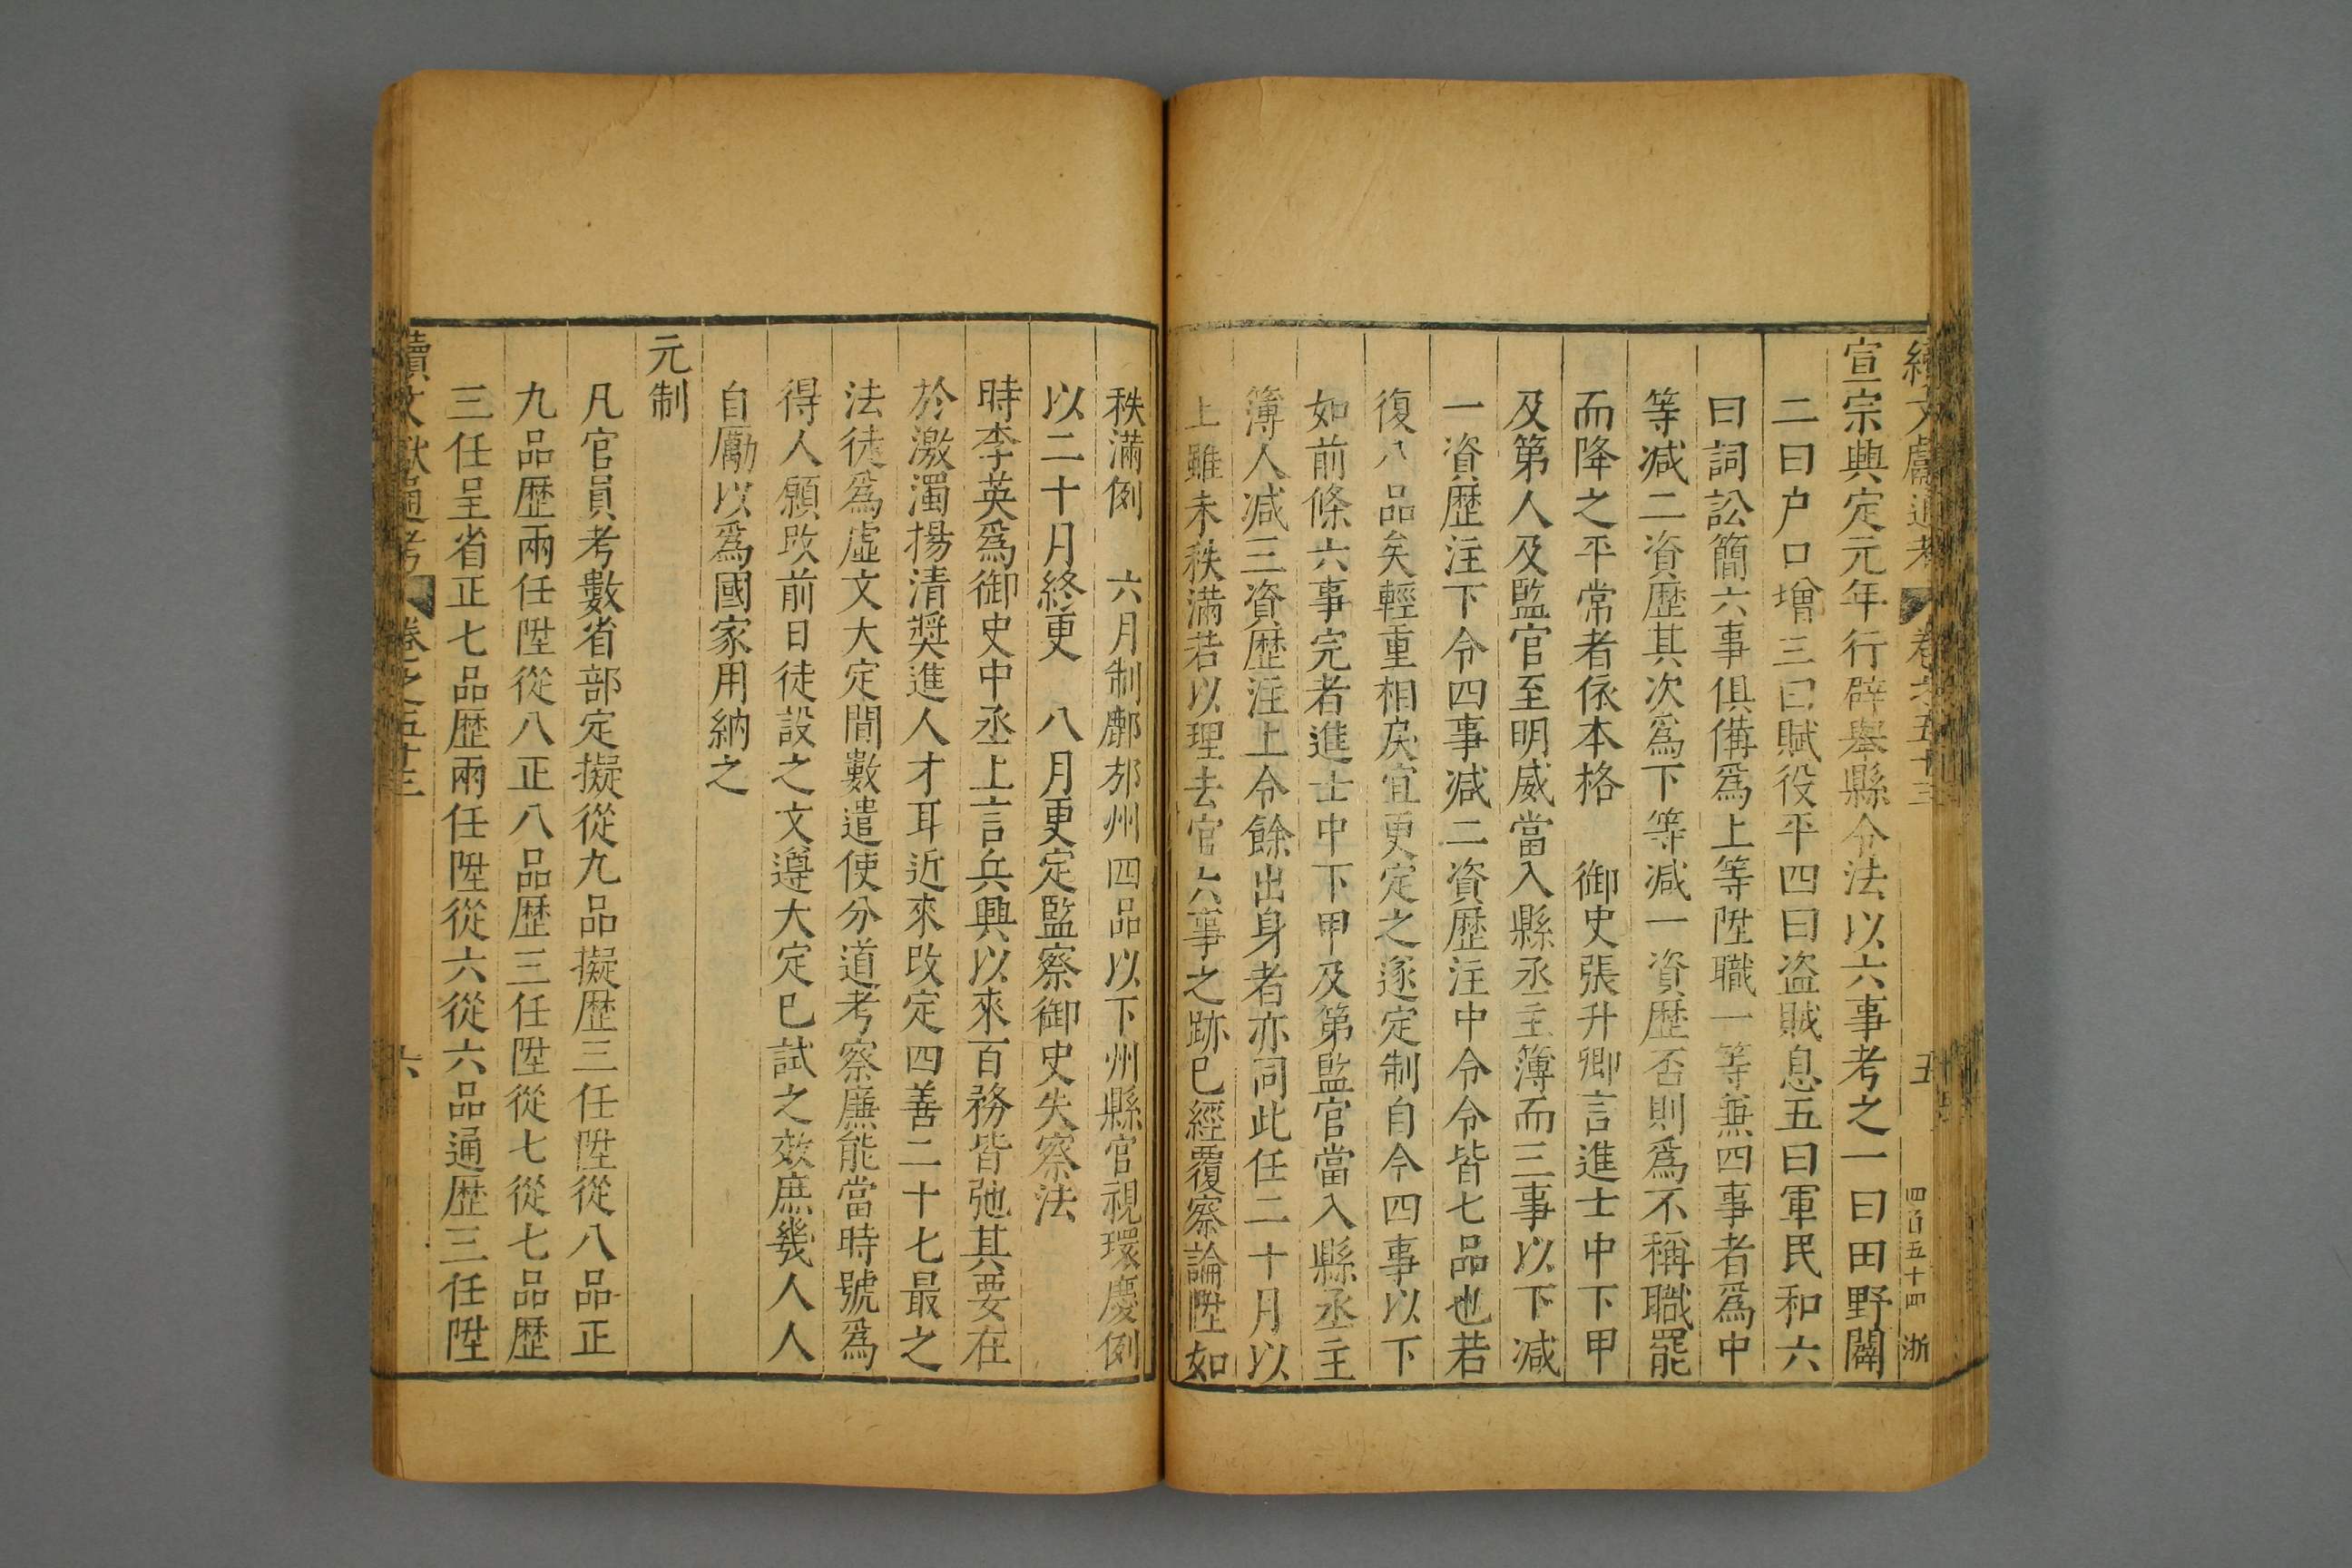 續文獻通考 卷之五十三 五 四百五十四 浙
宣宗興定元年行辟舉縣令法以六事考之一曰田野闢
二曰戶口增三曰賦役平四曰盜賊息五曰軍民和六
曰詞訟簡六事俱備爲上等陞職一等兼四事者爲中
等减二資歷其次爲下等减一資歷否則爲不稱職罷
而降之平常者依本格 御史張升卿言進士中下甲
及第人及監官至明威當入縣丞主簿而三事以下减
一資歷注下令四事减二資歷注中令令皆七品也若
復八品矣輕重相戾宜更定之遂定制自今四事以下
如前條六事完者進士中下甲及第監官當入縣丞主
簿人减三資歷注上令餘出身者亦同此任二十月以
上雖未秩滿若以理去官六事之跡已經覆察論陞如
秩滿例 六月制鄜邠州四品以下州縣官視環慶例
以二十月終更 八月更定監察御史失察法
時李英爲御史中丞上言兵興以來百務皆弛其要在
於激濁揚清奬進人才耳近來改定四善二十七最之
法徒爲虛文大定間數遣使分道考察廉能當時號爲
得人願改前日徒設之文遵大定已試之效庶幾人人
自勵以爲國家用納之
元制
凡官員考數省部定擬從九品擬歷三任陞從八品正
九品歷兩任陞從八正八品歷三任陞從七從七品歷
三任呈省正七品歷兩任陞從六從六品通歷三任陞
續文獻通考 卷之五十三 六